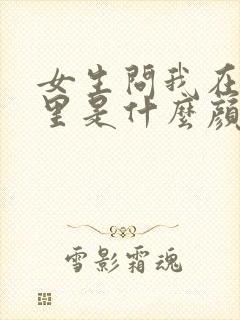 女生問我在
里是什麼顏
雪影霜魂